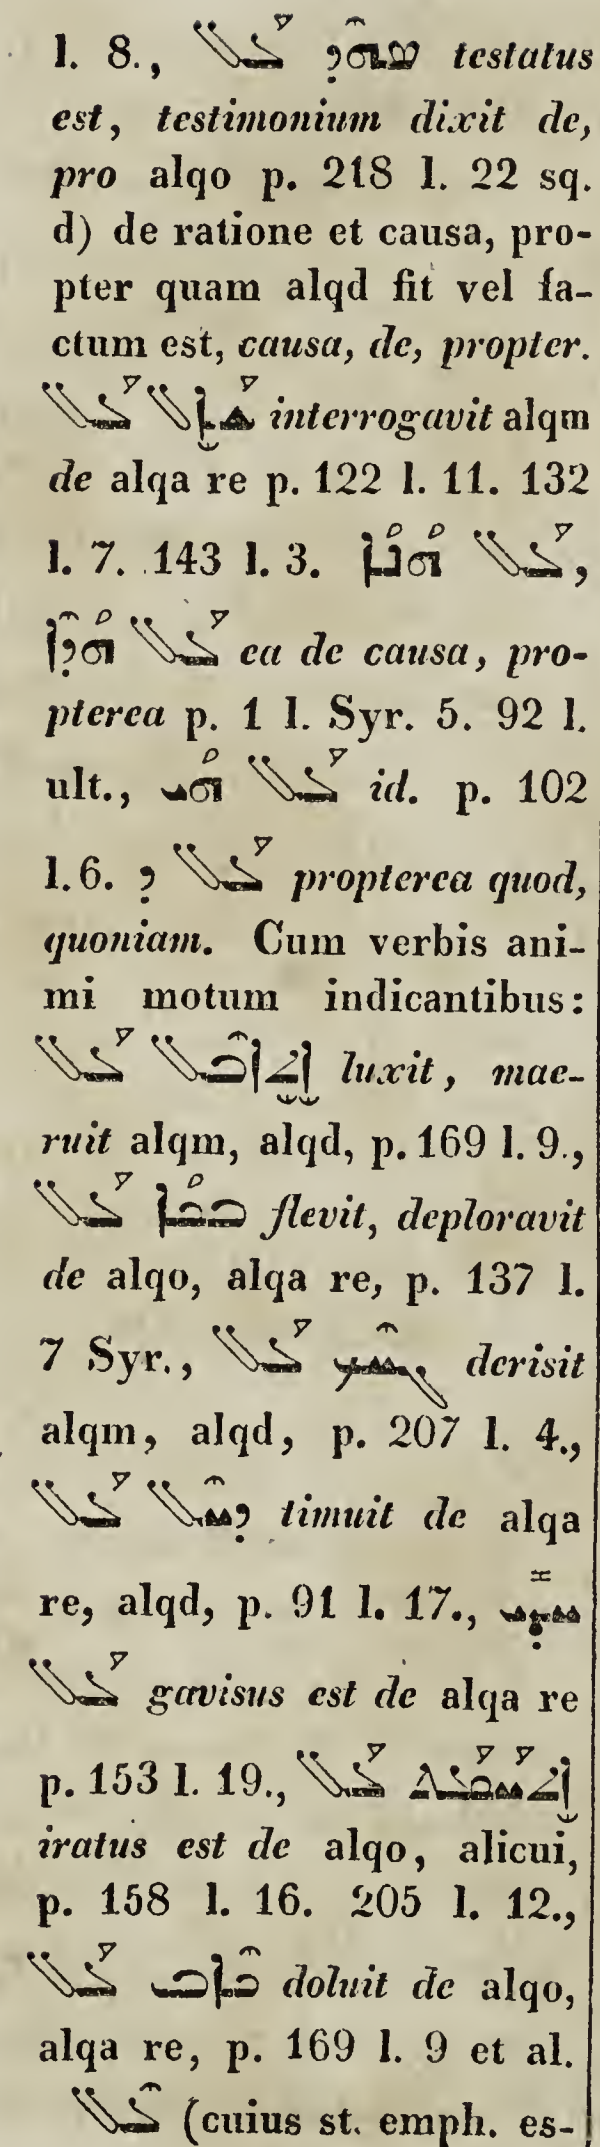 l. 8., ܣܗܶܕ ܥܰܠ testatus
est, testimonium dixit de,
pro alqo p. 218 l. 22 sq.
d) de ratione et causa, pro-
pter quam alqd fit vel fa-
ctum est, causa, de, propter.
ܫܰܐܶܠ ܥܰܠ interrogavit alqm
de alqa re p. 122 l. 11. 132
l. 7. 143 l. 3. ܥܰܠ ܗܳܢܳܐ,
ܥܰܠ ܗܳܕܶܐ ea de causa, pro-
pterea p. 1 l. Syr. 5. 92 l.
ult., ܥܰܠ ܗܳܝ id. p. 102
l. 6. ܥܰܠ ܕ propterea quod,
quoniam. Cum verbis ani-
mi motum indicantibus:
ܐܶܬܐܶܒܶܠ ܥܰܠ luxit, mae-
ruit alqm, alqd, p. 169 l. 9.,
ܒܟܳܐ ܥܰܠ flevit, deploravit
de alqo, alqa re, p. 137 l.
7 Syr., ܓܚܶܟ ܥܰܠ derisit
alqm, alqd, p. 207 l. 4.,
ܕܚܶܠ ܥܰܠ timuit de alqa
re, alqd, p. 91 l. 17., ܚܕܺܝ
ܥܰܠ gavisus est de alqa re
p. 153 l. 19., ܐܶܬܚܰܡܰܬ ܥܰܠ
iratus est de alqo, alicui,
p. 158 l. 16. 205 l. 12.,
ܟܶܐܒ ܥܰܠ doluit de alqo,
alqa re, p. 169 l. 9 et al.
ܥܶܠ (cuius st. emph. es-